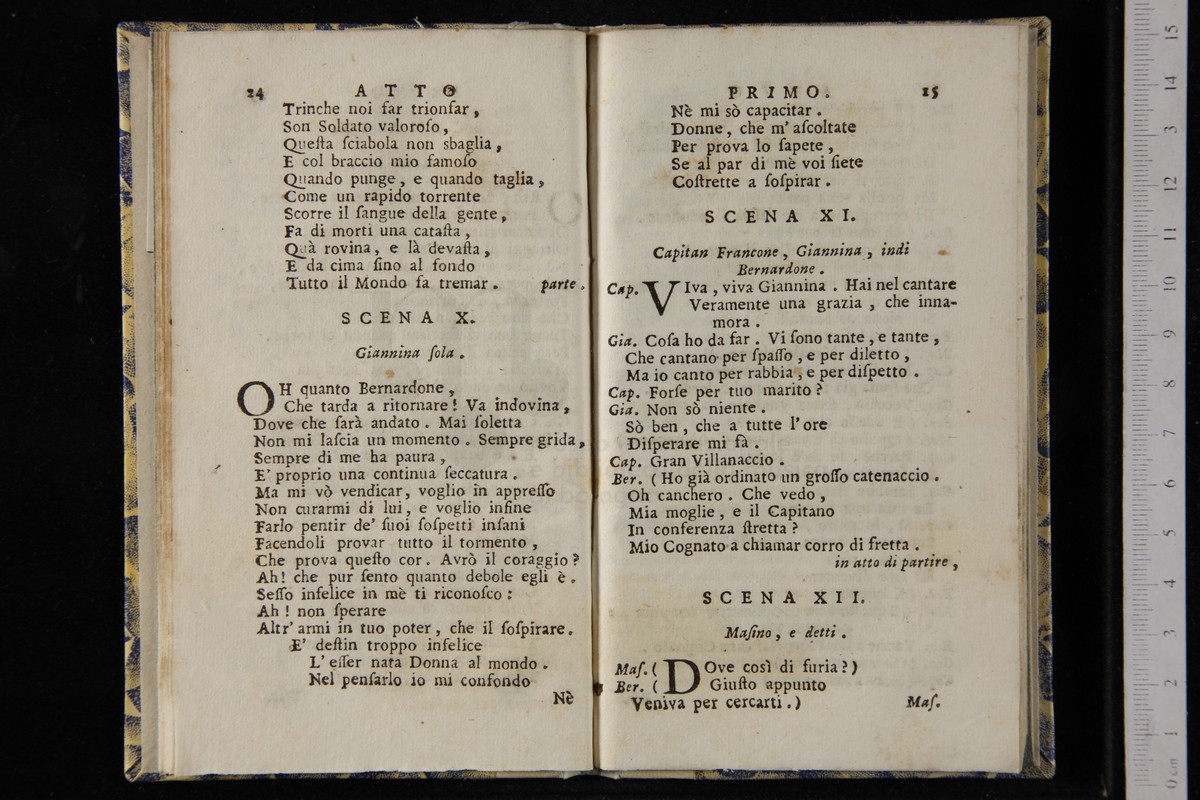 24 ATTO
Trinche noi far trionfar,
Son Soldato valoroſo,
Queſta ſciabola non sbaglia,
E col braccio mio famoſo
Quando punge, e quando taglia,
Come un rapido torrente
Scorre il ſangue della gente,
Fa di morti una cataſta,
Quà rovina, e là devaſta,
E da cima ſino al fondo
Tutto il Mondo fa tremar. parte.
SCENA X.
Giannina ſola.
OH quanto Bernardone,
Che tarda a ritornare! Va indovina,
Dove che ſarà andato. Mai ſoletta
Non mi laſcia un momento. Sempre grida,
Sempre di me ha paura,
E' proprio una continua ſeccatura.
Ma mi vò vendicar, voglio in appreſſo
Non curarmi di lui, e voglio infine
Farlo pentir de' ſuoi ſoſpetti inſani
Facendoli provar tutto il tormento,
Che prova queſto cor. Avrò il coraggio?
Ah! che pur ſento quanto debole egli è.
Seſſo infelice in mè ti riconoſco:
Ah! non ſperare
Altr' armi in tuo poter, che il ſoſpirare.
E' deſtin troppo infelice
L' eſſer nata Donna al mondo.
Nel penſarlo io mi confondo
Nè
PRIMO. 15
Nè mi sò capacitar.
Donne, che m' aſcoltate
Per prova lo ſapete,
Se al par di mè voi ſiete
Coſtrette a ſoſpirar.
SCENA XI.
Capitan Francone, Giannina, indi
Bernardone.
Cap. VIva, viva Giannina. Hai nel cantare
Veramente una grazia, che inna-
mora.
Gia. Coſa ho da far. Vi ſono tante, e tante,
Che cantano per ſpaſſo, e per diletto,
Ma io canto per rabbia, e per diſpetto.
Cap. Forſe per tuo marito?
Gia. Non sò niente.
Sò ben, che a tutte l' ore
Diſperare mi fà.
Cap. Gran Villanaccio.
Ber. (Ho già ordinato un groſſo catenaccio.
Oh canchero. Che vedo,
Mia moglie, e il Capitano
In conferenza ſtretta?
Mio Cognato a chiamar corro di fretta.
in atto di partire,
SCENA XII.
Maſino, e detti.
Maſ. (DOve così di furia?)
Ber. (Giuſto appunto
Veniva per cercarti.) Maſ.
0 cm 1 2 3 4 5 6 7 8 9 10 11 12 3 14 15